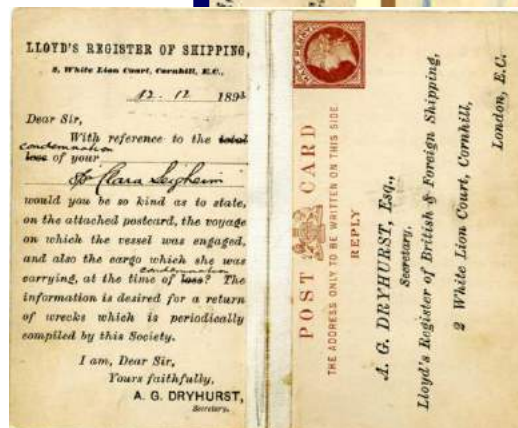 LLOYD'S REGISTER OF SHIPPING,
2, White Lion Court, Cornhill, E.C.,
12. 12 1893
Dear Sir,
With reference to the total
condemnation
loss of your
Clara
would you be so kind as to state,
on the attached postcard, the voyage
on which the vessel was engaged,
and also the cargo which she was
condemnation
carrying, at the time of loss? The
information is desired for a return
of wrecks which is periodically
compiled by this Society.
I am, Dear Sir,
Yours faithfully,
A. G. DRYHURST,
Secretary.
HALFPENNY
POST CARD
THE ADDRESS ONLY TO BE WRITTEN ON THIS SIDE
REPLY
A. G. DRYHURST, Esq.,
Secretary,
Lloyd's Register of British & Foreign Shipping,
2 White Lion Court, Cornhill,
London, E.C.